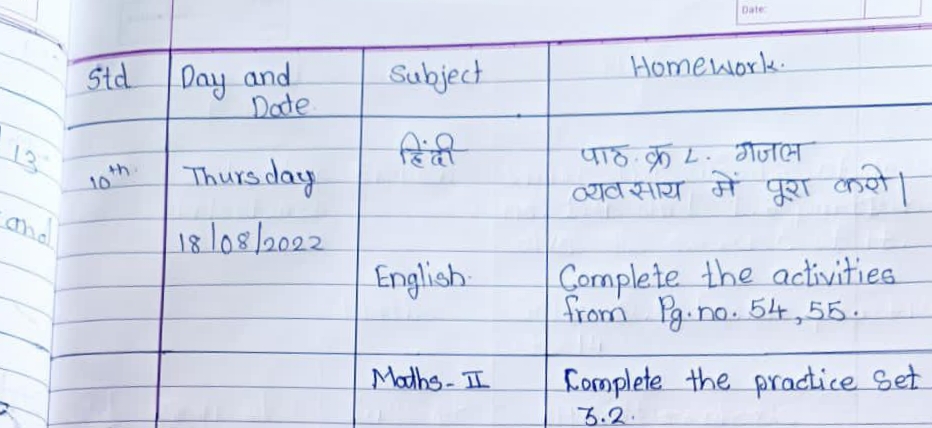 Date:
Std
Day and
Date
Subject
Homework.
13
and
10th
Thursday
18/08/2022
हिंदी
पाठ. क्र ८. गजल
व्यवसाय में पूरा करो |
English.
Complete the activities
from Pg.no. 54,55.
Maths-II
Complete the practice set
3.2.